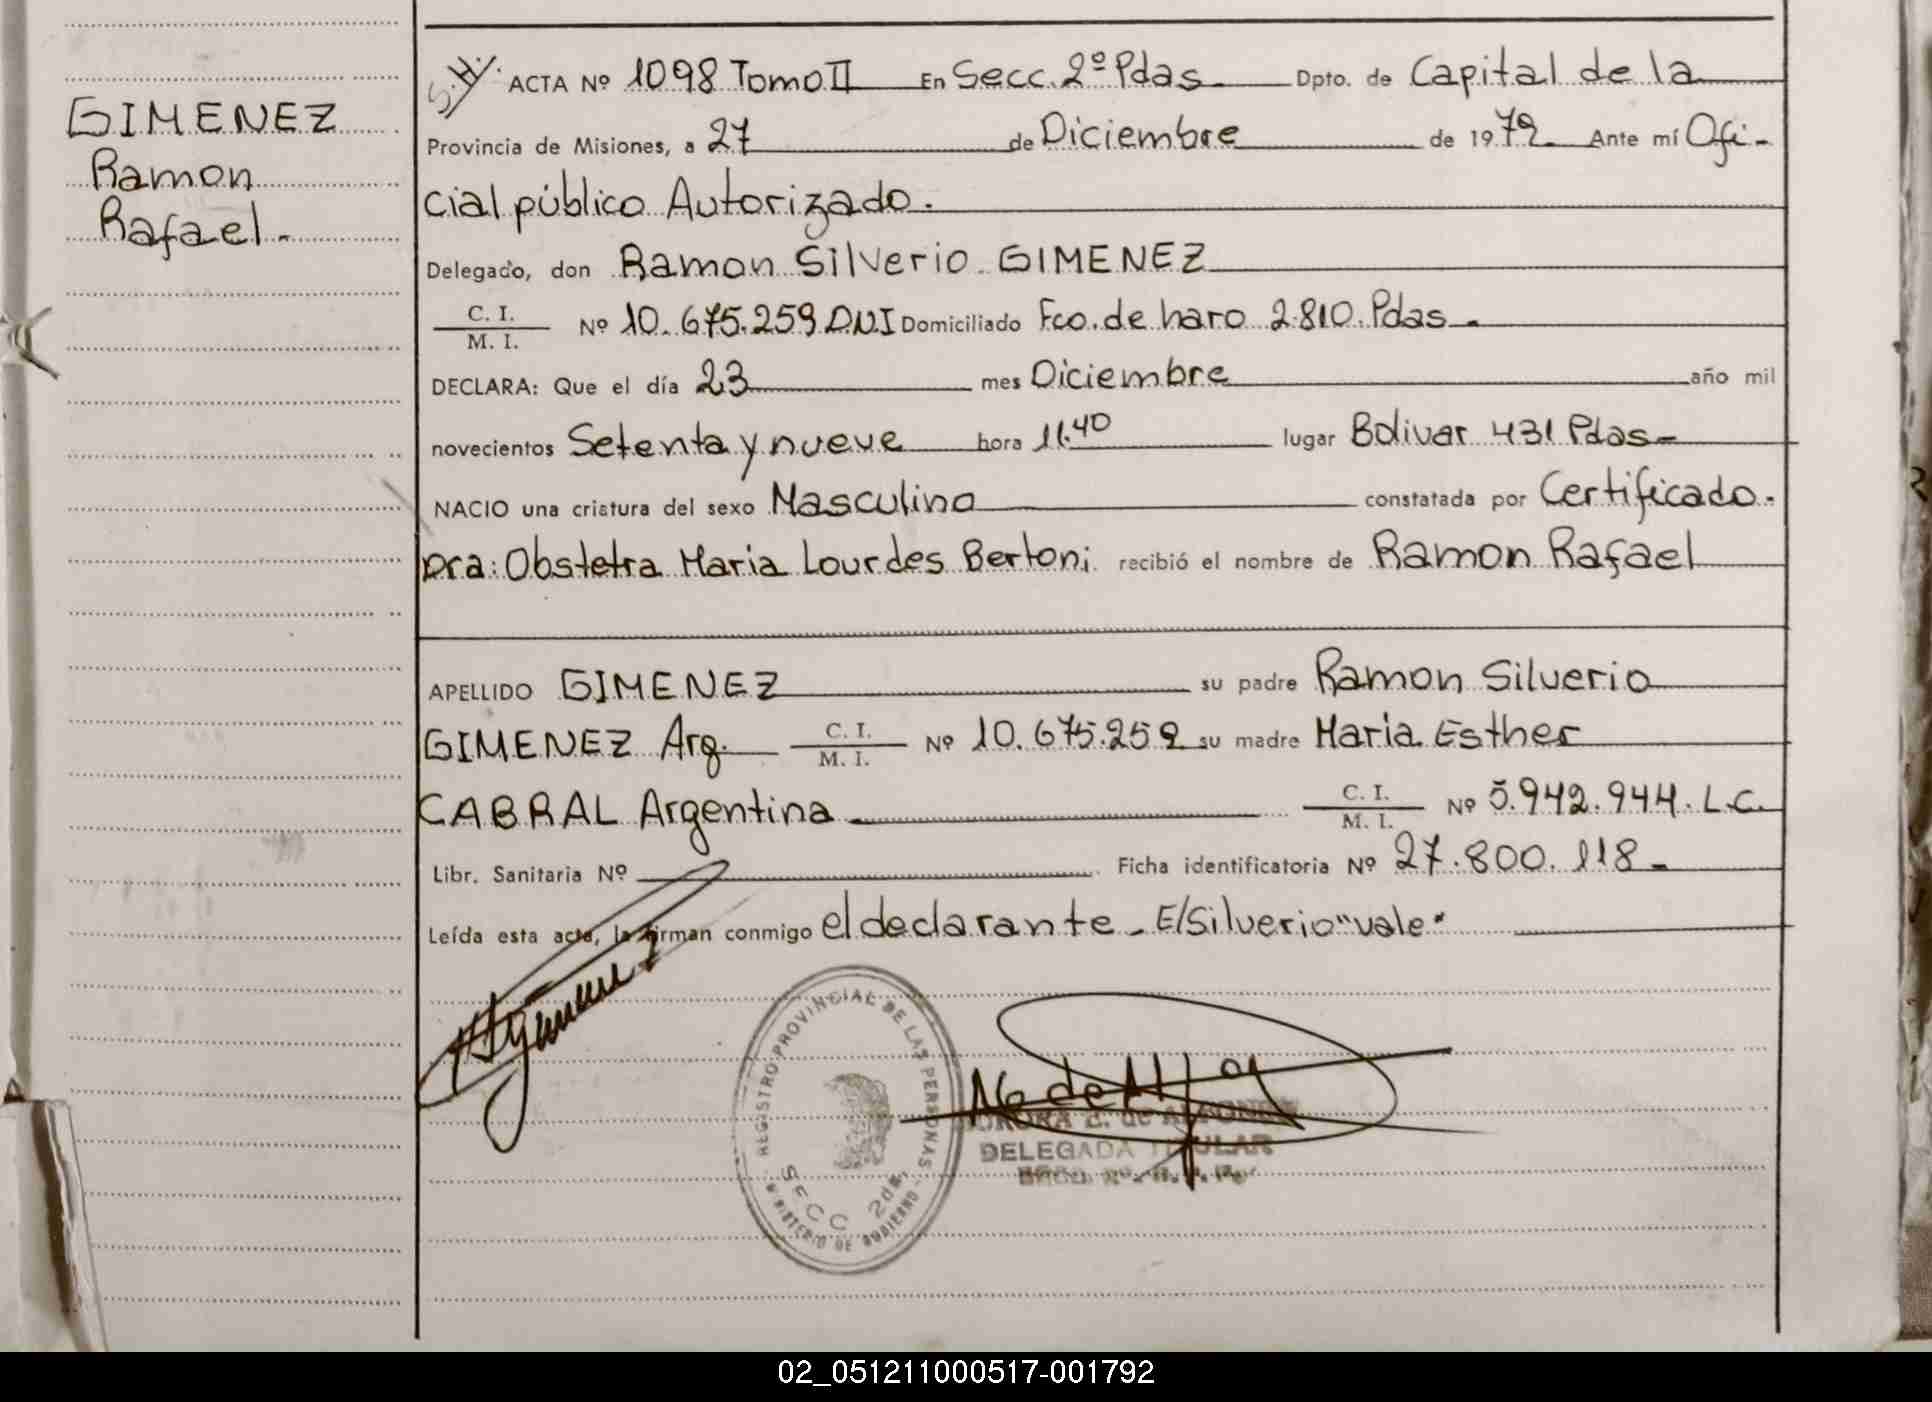 GIMENEZ
Ramon
Rafael.-
S.H. ACTA Nº 1098 Tomo II En Secc. 2º Pdas. Dpto. de Capital de la
Provincia de Misiones, a 27 de Diciembre de 1979 Ante mí Ofi-
cial público Autorizado.
Delegado, don Ramon Silverio GIMENEZ
C. I.
M. I. Nº 10.675.259 DNI Domiciliado Fco. de haro 2810 Pdas.
DECLARA: Que el día 23 mes Diciembre año mil
novecientos Setenta y nueve hora 11.40 lugar Bolivar 431 Pdas-
NACIO una criatura del sexo Masculino constatada por Certificado.
Dra: Obstetra Maria Lourdes Bertoni recibió el nombre de Ramon Rafael
APELLIDO GIMENEZ su padre Ramon Silverio
GIMENEZ Arg. C. I. M. I. Nº 10.675.259 su madre Maria Esther
CABRAL Argentina C. I. M. I. Nº 5.942.944. L.C.
Libr. Sanitaria Nº Ficha identificatoria Nº 27.800.118-
Leída esta acta, la firman conmigo el declarante. E/Silverio "vale"
REGISTRO PROVINCIAL DE LAS PERSONAS
SECC 2da.
MINISTERIO DE GOBIERNO
DELEGADA TITULAR
02_051211000517-001792